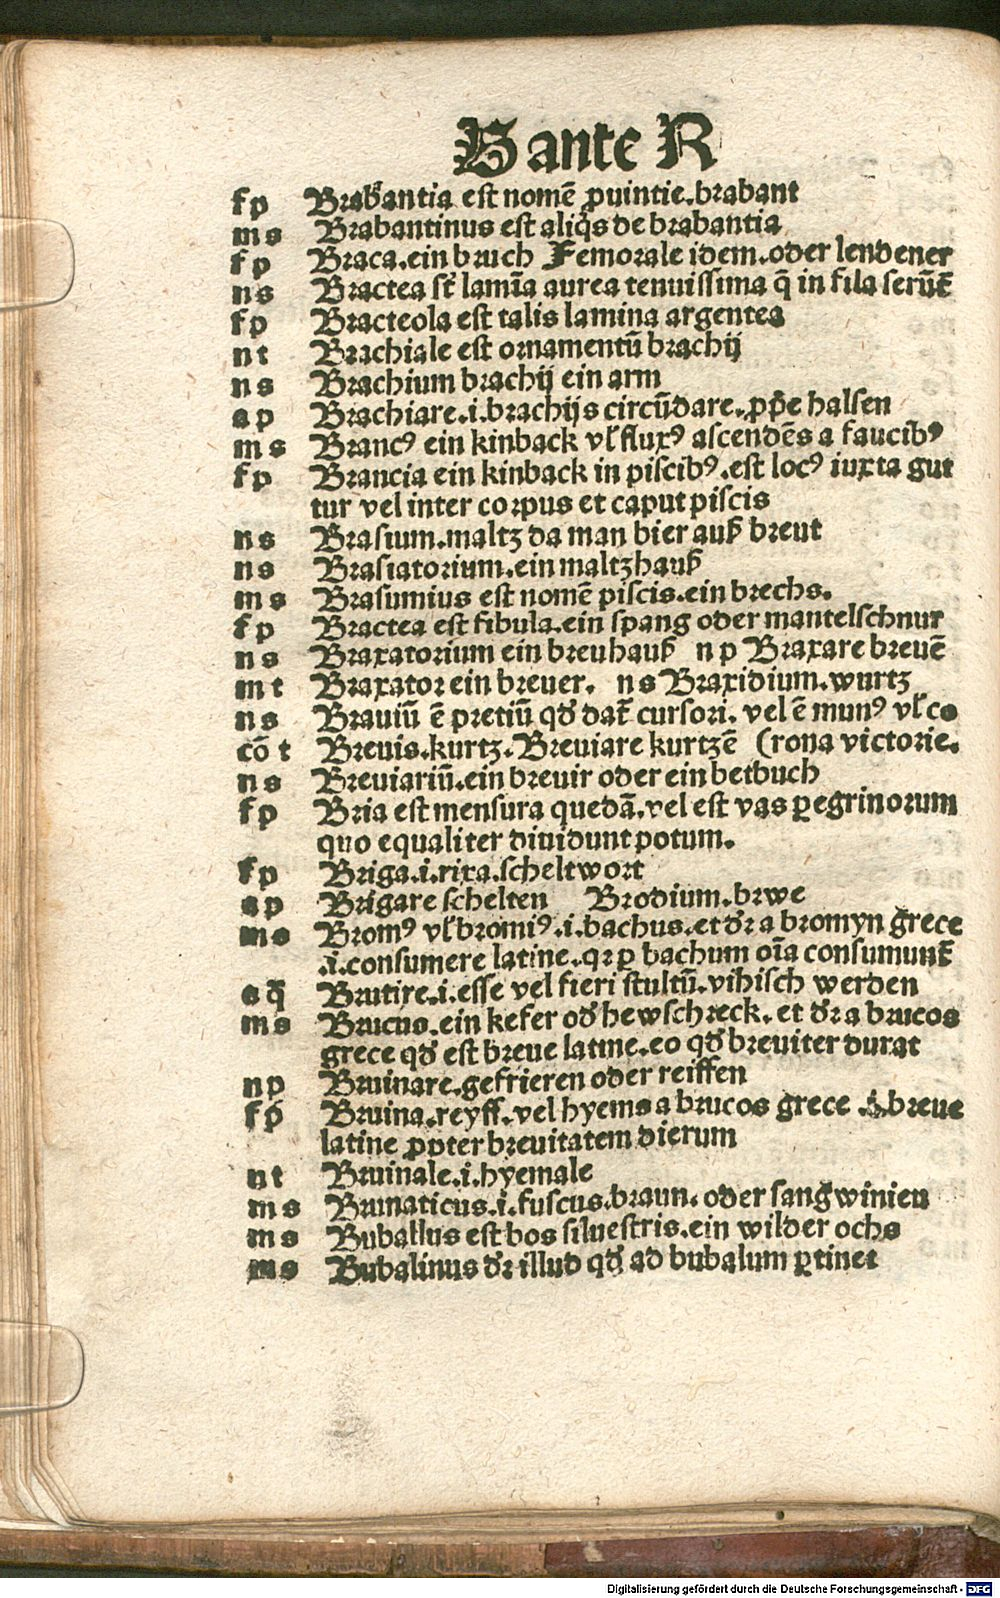 B ante R
f p Brabantia est nomē ꝓuintie.brabant
m s Brabantinus est aliq̄s de brabantia
f p Braca.ein bruch Femorale idem.oder lendener
n s Bractea st̄ lamīa aurea tenuissima q̄ in fila serūt̄
f p Bracteola est talis lamina argentea
n t Brachiale est ornamentū brachij
n s Brachium brachij ein arm
a p Brachiare.i.brachijs circūdare.ꝓpe halsen
m s Brancꝰ ein kinback vl̓ fluxꝰ ascendēs a faucibꝰ
f p Brancia ein kinback in piscibꝰ.est locꝰ iuxta gut
tur vel inter corpus et caput piscis
n s Brasium.maltz da man bier auß breut
n s Brasiatorium.ein maltzhauß
m s Brasumius est nomē piscis.ein brechs.
f p Bractea est fibula.ein spang oder mantelschnur
n s Braxatorium ein breuhauß n p Braxare breuē
m t Braxator ein breuer. n s Braxidium.wurtz
n s Brauiū ē pretiū qđ dat̄ cursori. vel ē munꝰ vl̓ co
cō t Breuis.kurtz.Breuiare kurtzē (rona victorie.
n s Breuiariū.ein breuir oder ein betbuch
f p Bria est mensura quedā.vel est vas ꝑegrinorum
quo equaliter diuidunt potum.
f p Briga.i.rixa.scheltwort
a p Brigare schelten Brodium.brwe
m s Bromꝰ vl̓ bromiꝰ.i.bachus.et dr̄ a bromyn grece
.i.consumere latine.qꝛ ꝑ bachum oīa consumunt̄
a q̄ Brutire.i.esse vel fieri stultū.vihisch werden
m s Brucus.ein kefer od̓ hewschreck. et dr̄ a brucos
grece qđ est breue latine.eo qđ breuiter durat
n p Bruinare.gefrieren oder reiffen
f p Bruina.reyff.vel hyems a brucos grece .i.breue
latine ꝓpter breuitatem dierum
n t Bruinale.i.hyemale
m s Brunaticus.i.fuscus.braun. oder sangwinien
m s Buballus est bos siluestris.ein wilder ochs
m s Bubalinus dr̄ illud qđ ad bubalum ꝑtinet
Digitalisierung gefördert durch die Deutsche Forschungsgemeinschaft - DFG